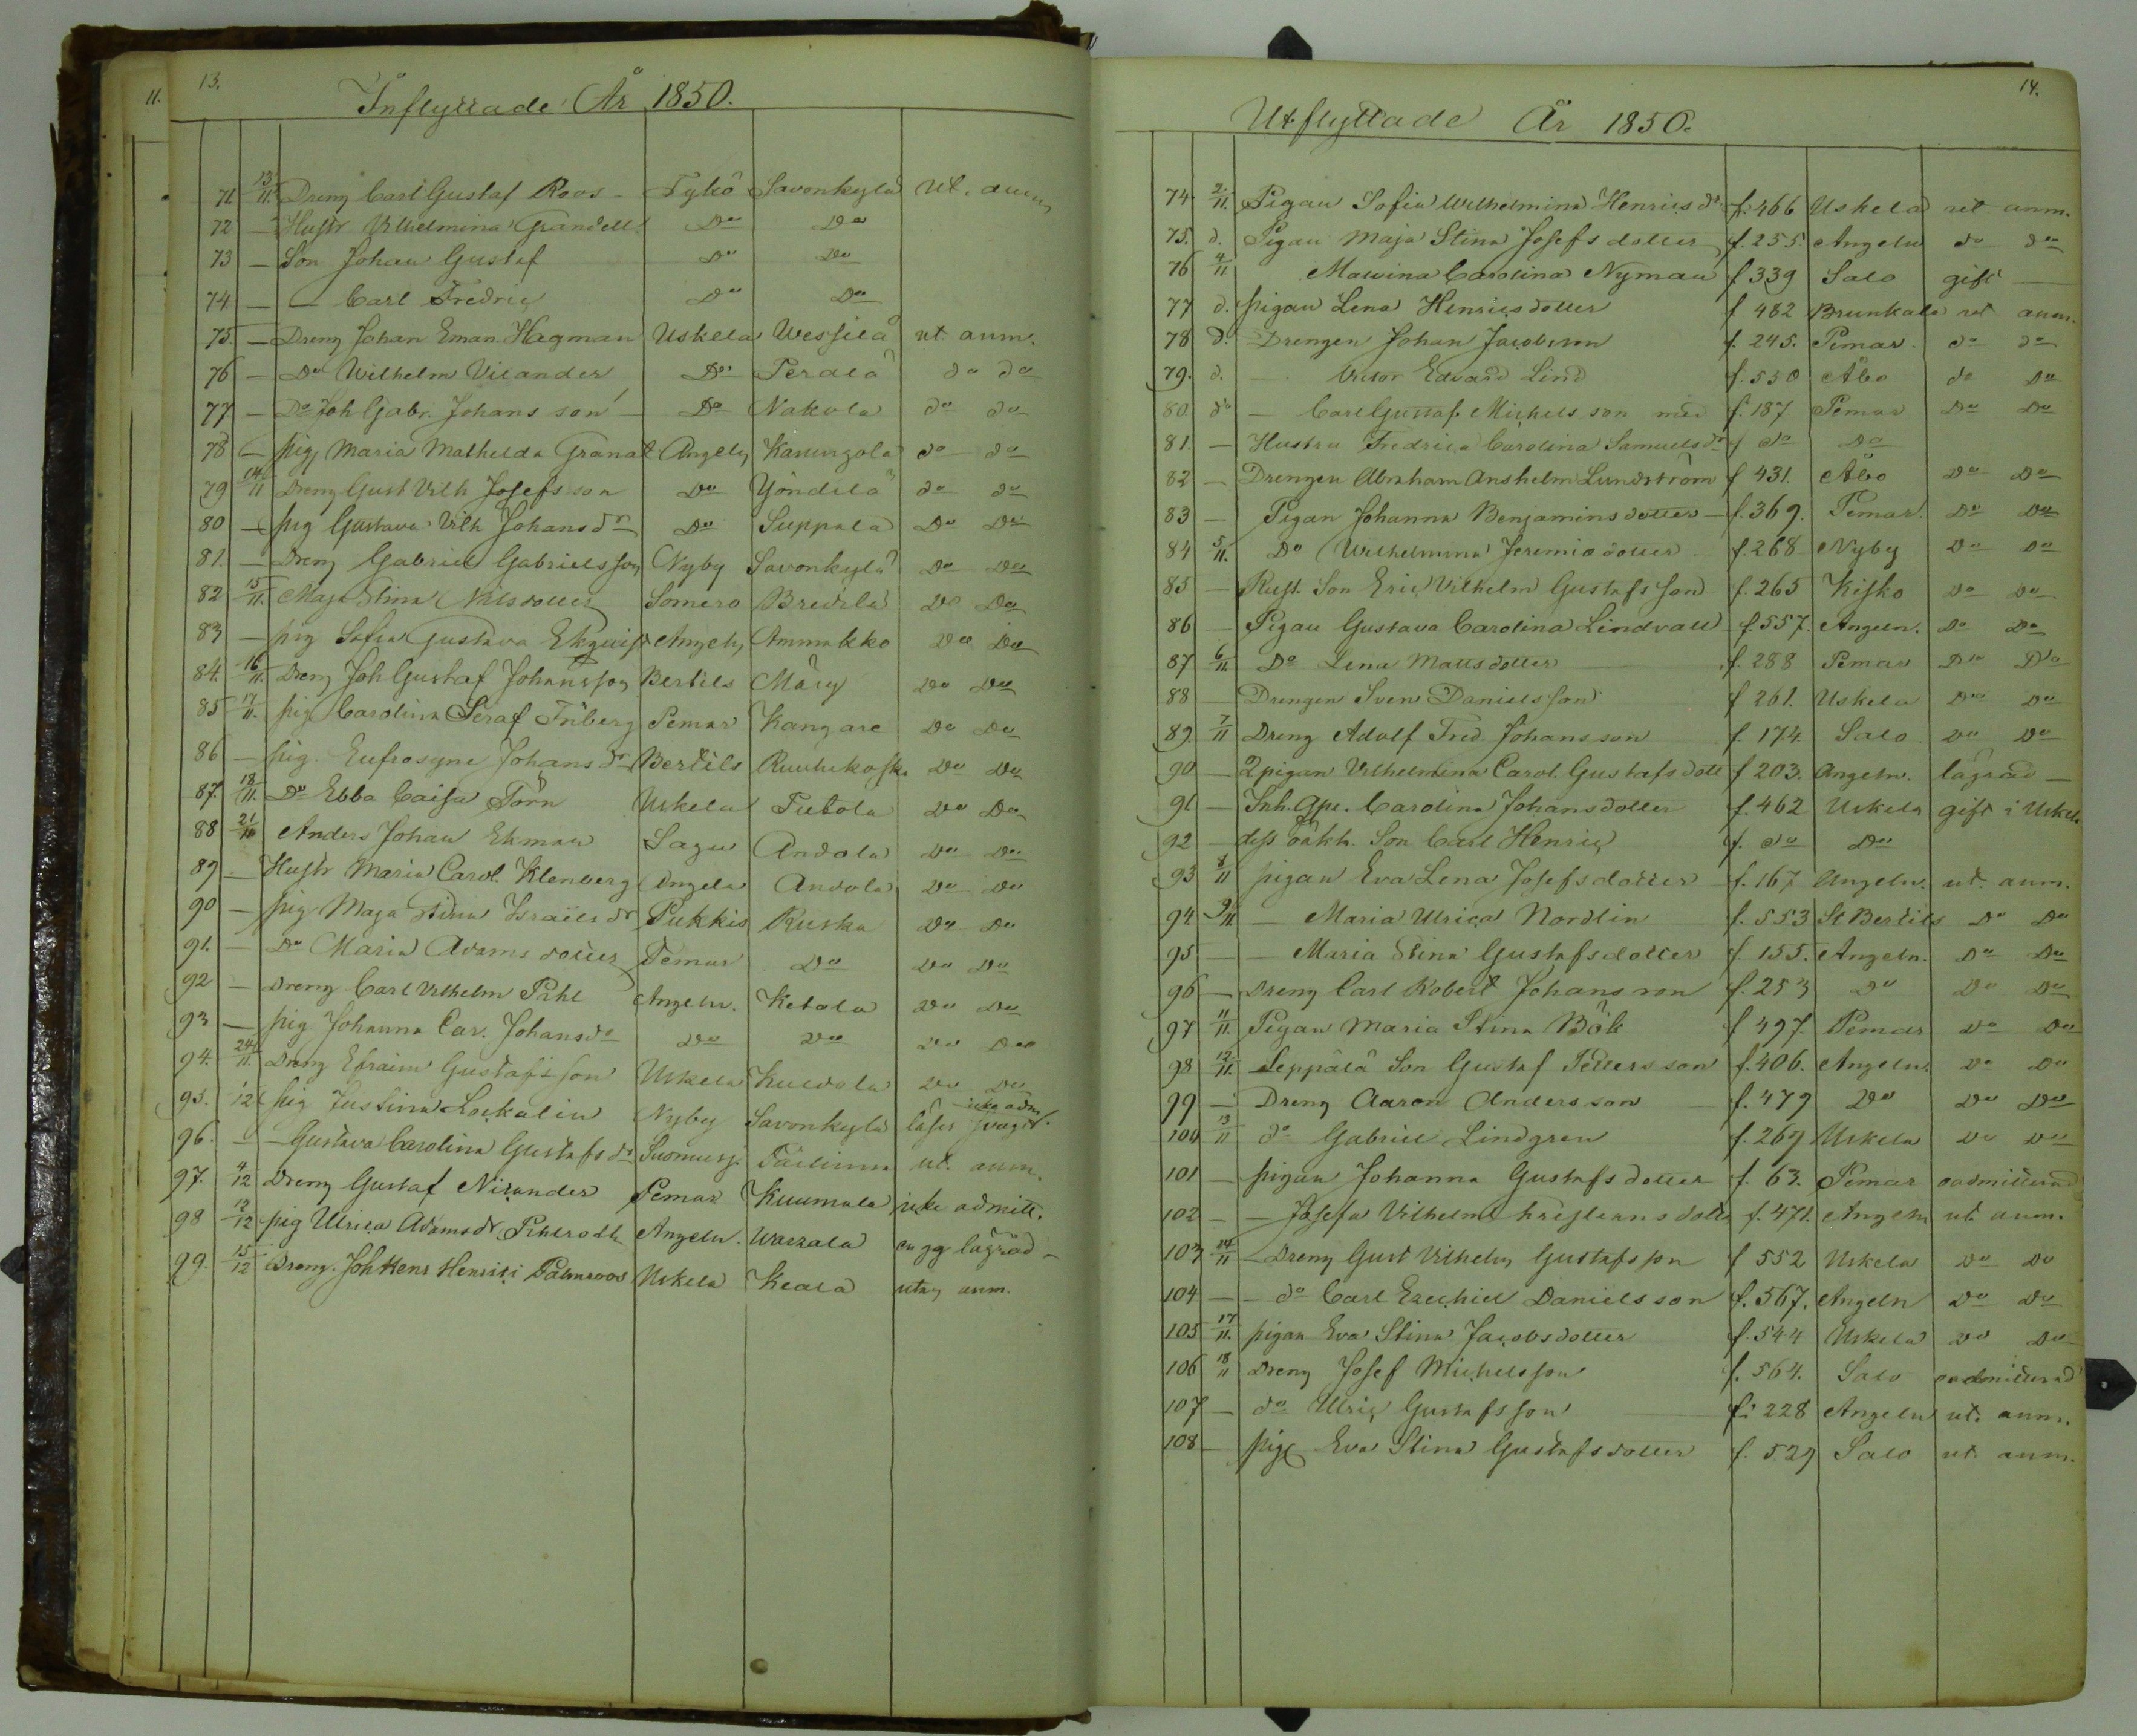 11.
13.
Inflyttade År 1850.
71 13/11. Dreng Carl Gustaf Roos - Tykö Savonkylä Ut. anm
72 — Hustr Vilhelmina Grandell Do Do
73 — Son Johan Gustaf Do Do
74 — — Carl Fredric Do Do
75. — Dreng Johan Eman. Hagman Uskela Wessilä ut. anm.
76 — Do Wilhelm Vilander Do Perälä do do
77 — Do Joh Gabr. Johans son — Do Nakola do do
78 — pig Maria Mathilda Granat Angeln Karungola do do
79 14/11 Dreng Gust Vilh Josefs son Do Yöndilä do do
80 — pig Gustava Vilh Johansdr Do Suppala Do Do
81. — Dreng Gabriel Gabrielsson Nyby Savonkylä Do Do
82 15/11. Maja Stina Nilsdotter Somero Bredilä Do Do
83 — pig Sofia Gustava Ekqvist Angeln Ammakko Do Do
84. 16/11. Dreng Joh Gustaf Johansson Bertils Märy Do Do
85 17/11. pig Carolina Seraf Friberg Pemar Kangare Do Do
86 — pig. Eufrosyne Johans dr Bertils Ruuhikoski Do Do
87. 18/11. Do Ebba Caisa Törn Uskela Pietola Do Do
88 21/11 Anders Johan Ekman Sagu Andola Do Do
89 - Hustr Maria Carol. Klenberg Angela Andola Do Do
90 — pig Maja Stina Israels dr Pukkis Ruska Do Do
91. — Do Maria Adams dotter Pemar Do Do Do
92 — Dreng Carl Vilhelm Pihl Angeln. Ketola Do Do
93 — pig Johanna Car. Johansdr Do Do Do Do
94. 24/11. Dreng Efraim Gustafsson Uskela Kuivola Do Do
95. 12 pig Justina Lockalin Nyby Savonkylä läser svagt. icke adm
96. — — Gustava Carolina Gustafs dr Suomusj. Pailinna ut. anm.
97. 4/12 Dreng Gustaf Nirander Pemar Kuumala icke admitt.
98 12/12 pig Ulrica Adamsdr. Pihlroth Angeln. Warzala en gg lägrad -
99. 15/12 Dreng. Joh Kens Henrici Palmroos Uskela Keala utan anm.
14.
Utflyttade År 1850.
74 2/11. Pigan Sofia Wilhelmina Henrics dr. f. 466 Uskela ut anm.
75. d. Pigan Maja Stina Josefs dotter f. 255. Angeln do do
76 4/11 Malvina Carolina Nyman f 339 Salo gift —
77 d. pigan Lena Henricsdotter f 482 Brunkala ut anm.
78 d. Drengen Johan Jacobsson f. 245. Pemar. do do
79. d. — Victor Edvard Lind f. 530 Åbo do Do
80. do — Carl Gustaf. Michels son med f. 187 Pemar Do Do
81. — Hustru Fredrica Carolina Samuelsdr f do Do
82 — Drengen Abraham Anshelm Lundström f 431. Åbo Do Do
83 — Pigan Johanna Benjamins dotter — f. 369. Pemar. Do Do
84 5/11. Do Wilhelmina Jeremiedotter f. 268 Nyby Do Do
85 — Rust. Son Eric Vilhelm Gustafsson f. 265 Kisko Do Do
86 — Pigan Gustava Carolina Lindvall f. 557. Angeln. Do Do
87 6/11. Do Lena Mattsdotter f. 288 Pemar Do Do
88 — Drengen Sven Danielsson f 261. Uskela Do Do
89. 7/11 Dreng Adolf Fred. Johans son f. 174. Salo Do Do
90 — Qpigan Vilhelmina Carol. Gustafsdott f 203. Angeln. lägrad —
91 — Inh. Gpe. Carolina Johansdotter f. 462 Uskela gift i Uskela
92 — dess oäkta Son Carl Henric f. do Do
93 8/11 pigan Eva Lena Josefsdotter f. 167 Angeln. ut. anm.
94. 9/11 — Maria Ulrica Nordlin f. 553 St Bertils Do Do
95 — — Maria Stina Gustafsdotter f 155. Angeln. Do Do
96 — Dreng Carl Robert Johans son f. 253 Do Do Do
97 11/11. Pigan Maria Stina Böök f 497. Pemar Do Do
98 12/11. Seppälä Son Gustaf Petters son f. 406. Angeln. Do Do
99 — Dreng Aaron Anders son f. 479 Do Do Do
100 13/11 do Gabriel Lindgren f. 269 Uskela Do Do
101 — pigan Johanna Gustafs dotter f. 63. Pemar oadmitterad
102 — — Josefa Vilhelm Christiansdotter f. 471. Angeln ut. anm.
103 14/11 — Dreng Gust Vilhelm Gustafsson f 552 Uskela Do Do
104 — — do Carl Ezechiel Daniels son f. 567. Angeln Do Do
105 17/11. pigan Eva Stina Jacobsdotter f. 544 Uskela Do Do
106 18/11 Dreng Josef Michelsson f. 564. Salo oadmitterad
107 — do Ulric Gustafsson f. 228 Angeln ut. anm.
108 — pig Eva Stina Gustafsdotter f. 529 Salo ut. anm.